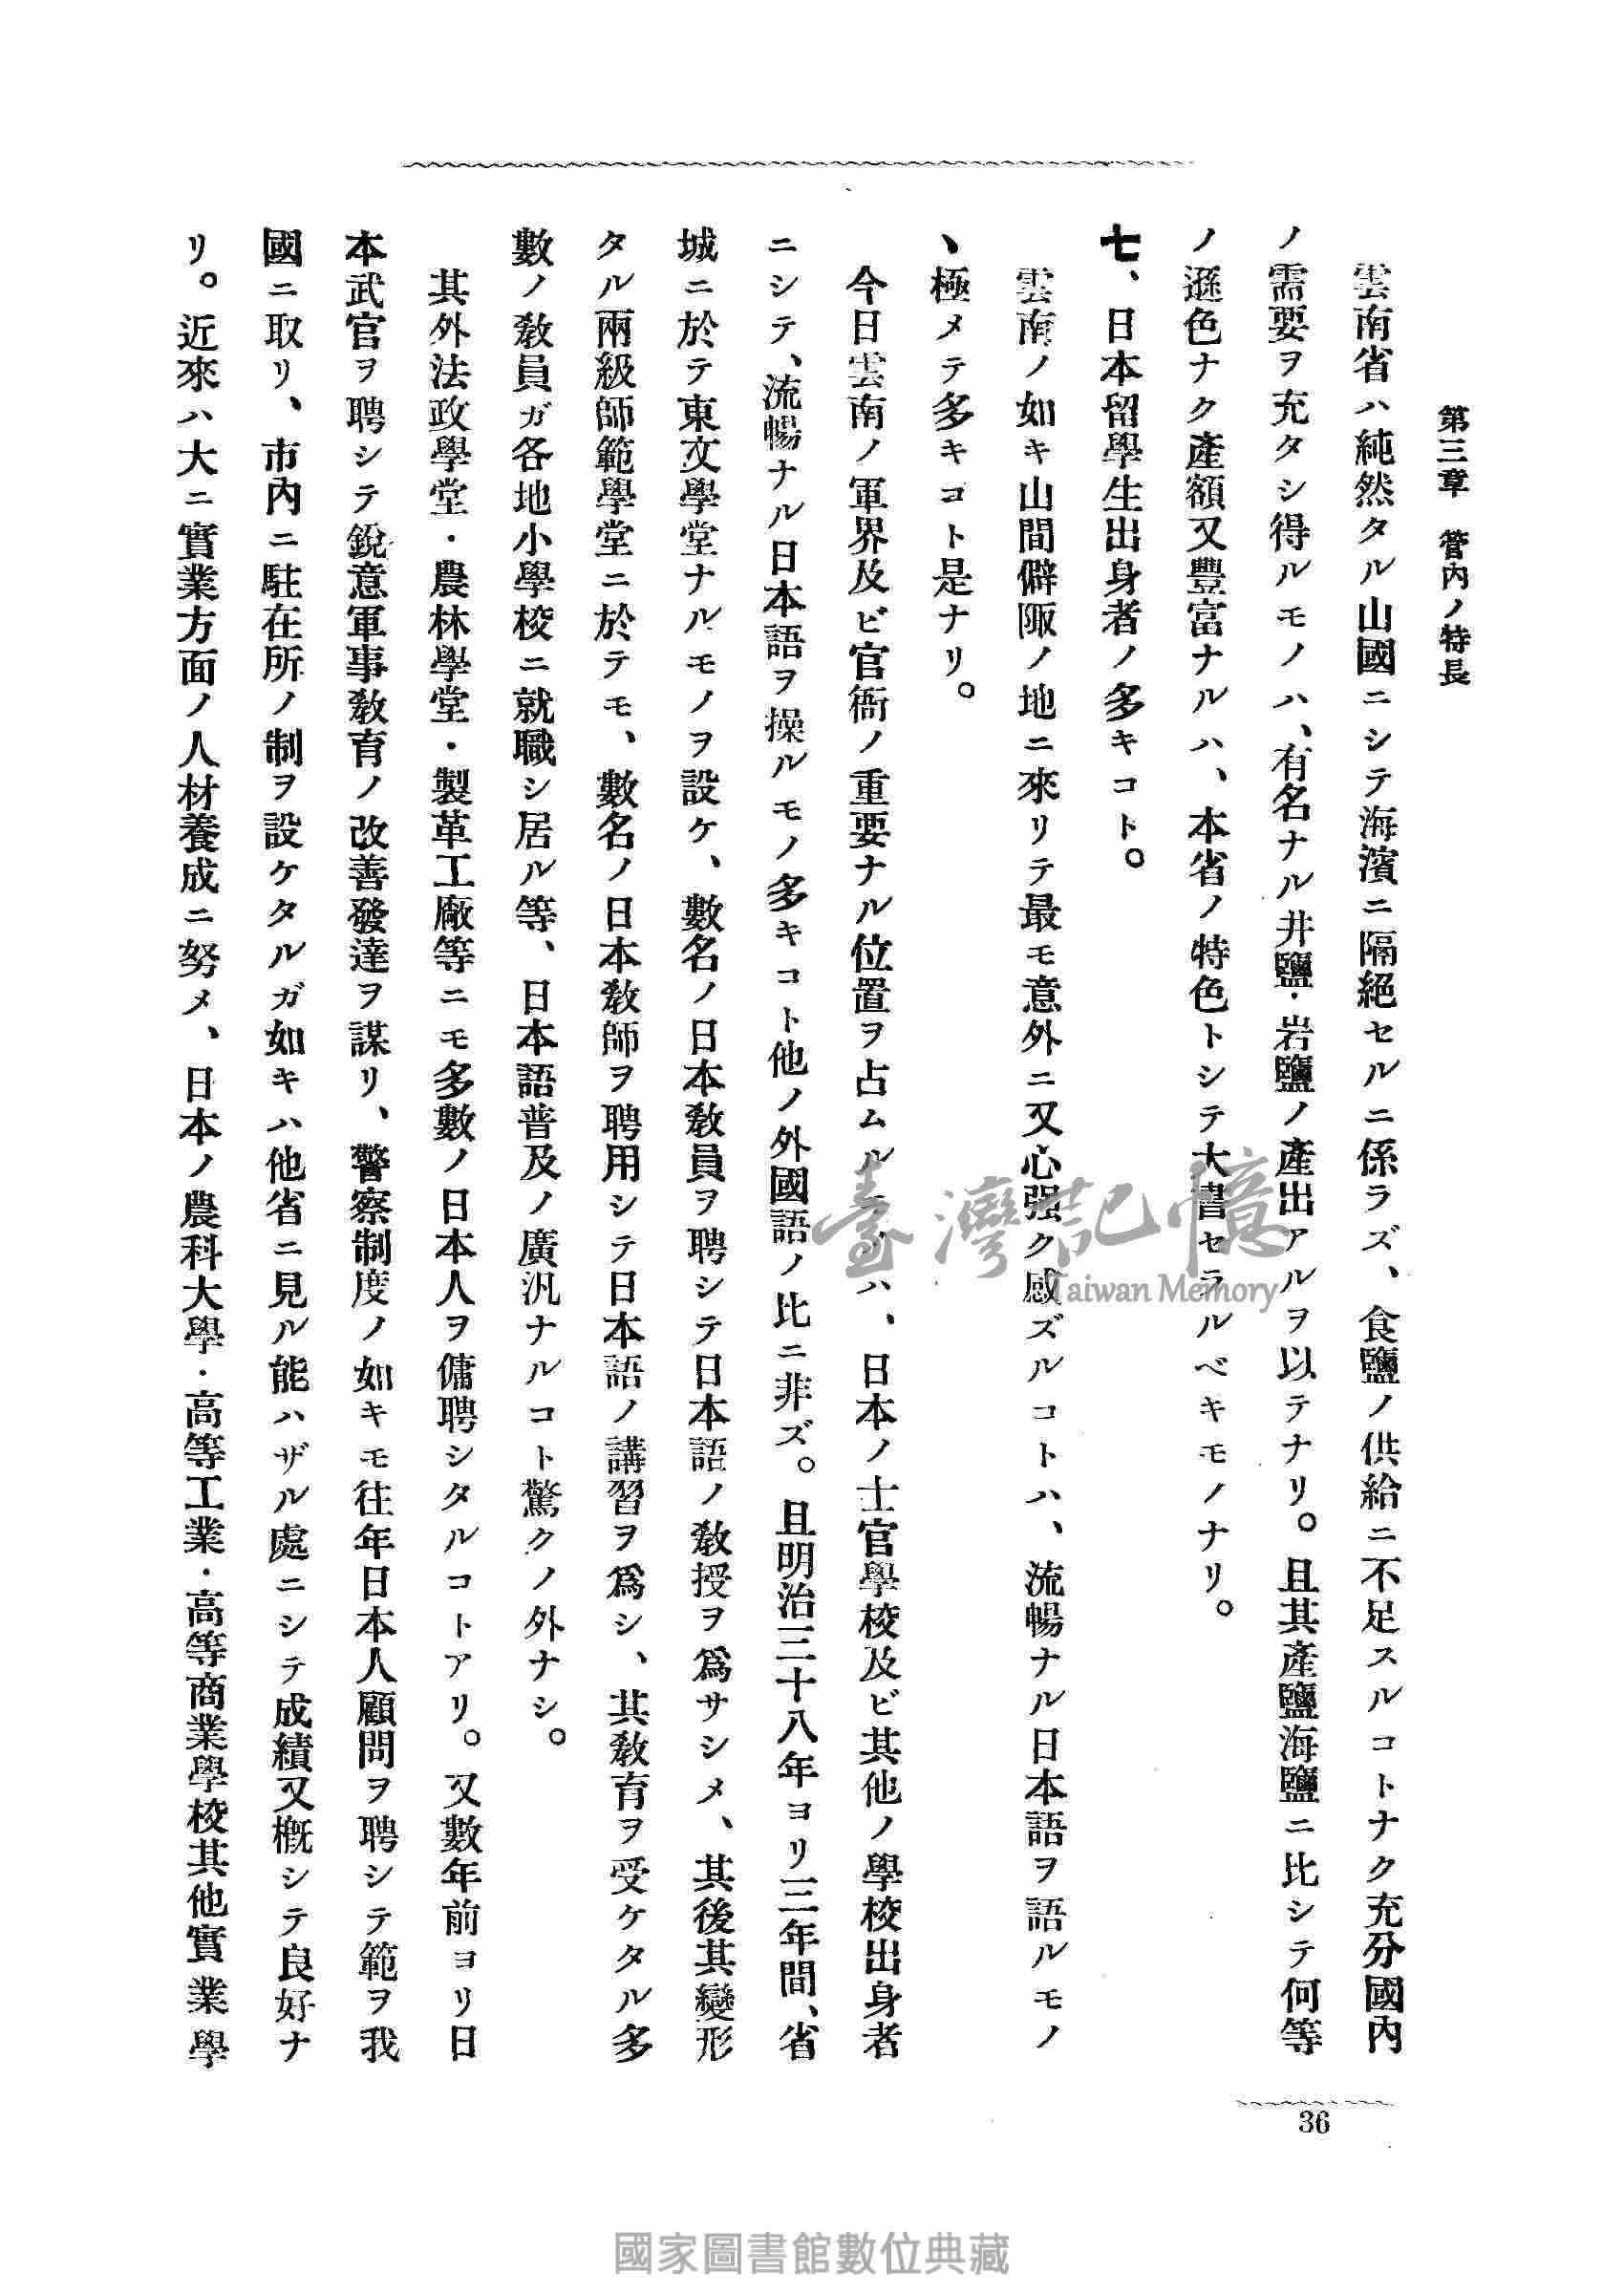 第三章　管內ノ特長
雲南省ハ純然タル山國ニシテ海濱ニ隔絕セルニ係ラズ、食鹽ノ供給ニ不足スルコトナク充分國內
ノ需要ヲ充タシ得ルモノハ、有名ナル井鹽・岩鹽ノ產出アルヲ以テナリ。且其產鹽海鹽ニ比シテ何等
ノ遜色ナク產額又豐富ナルハ、本省ノ特色トシテ大書セラルベキモノナリ。
七、日本留學生出身者ノ多キコト。
雲南ノ如キ山間僻陬ノ地ニ來リテ最モ意外ニ又心强ク感ズルコトハ、流暢ナル日本語ヲ語ルモノ
、極メテ多キコト是ナリ。
今日雲南ノ軍界及ビ官衙ノ重要ナル位置ヲ占ムルハ、日本ノ士官學校及ビ其他ノ學校出身者
ニシテ、流暢ナル日本語ヲ操ルモノ多キコト他ノ外國語ノ比ニ非ズ。且明治三十八年ヨリ三年間、省
城ニ於テ東文學堂ナルモノヲ設ケ、數名ノ日本敎員ヲ聘シテ日本語ノ敎授ヲ爲サシメ、其後其變形
タル兩級師範學堂ニ於テモ、數名ノ日本敎師ヲ聘用シテ日本語ノ講習ヲ爲シ、其敎育ヲ受ケタル多
數ノ敎員ガ各地小學校ニ就職シ居ル等、日本語普及ノ廣汎ナルコト驚クノ外ナシ。
其外法政學堂・農林學堂・製革工廠等ニモ多數ノ日本人ヲ傭聘シタルコトアリ。又數年前ヨリ日
本武官ヲ聘シテ銳意軍事敎育ノ改善發達ヲ謀リ、警察制度ノ如キモ往年日本人顧問ヲ聘シテ範ヲ我
國ニ取リ、市內ニ駐在所ノ制ヲ設ケタルガ如キハ他省ニ見ル能ハザル處ニシテ成績又槪シテ良好ナ
リ。近來ハ大ニ實業方面ノ人材養成ニ努メ、日本ノ農科大學・高等工業・高等商業學校其他實業學
36
臺灣記憶
Taiwan Memory
國家圖書館數位典藏